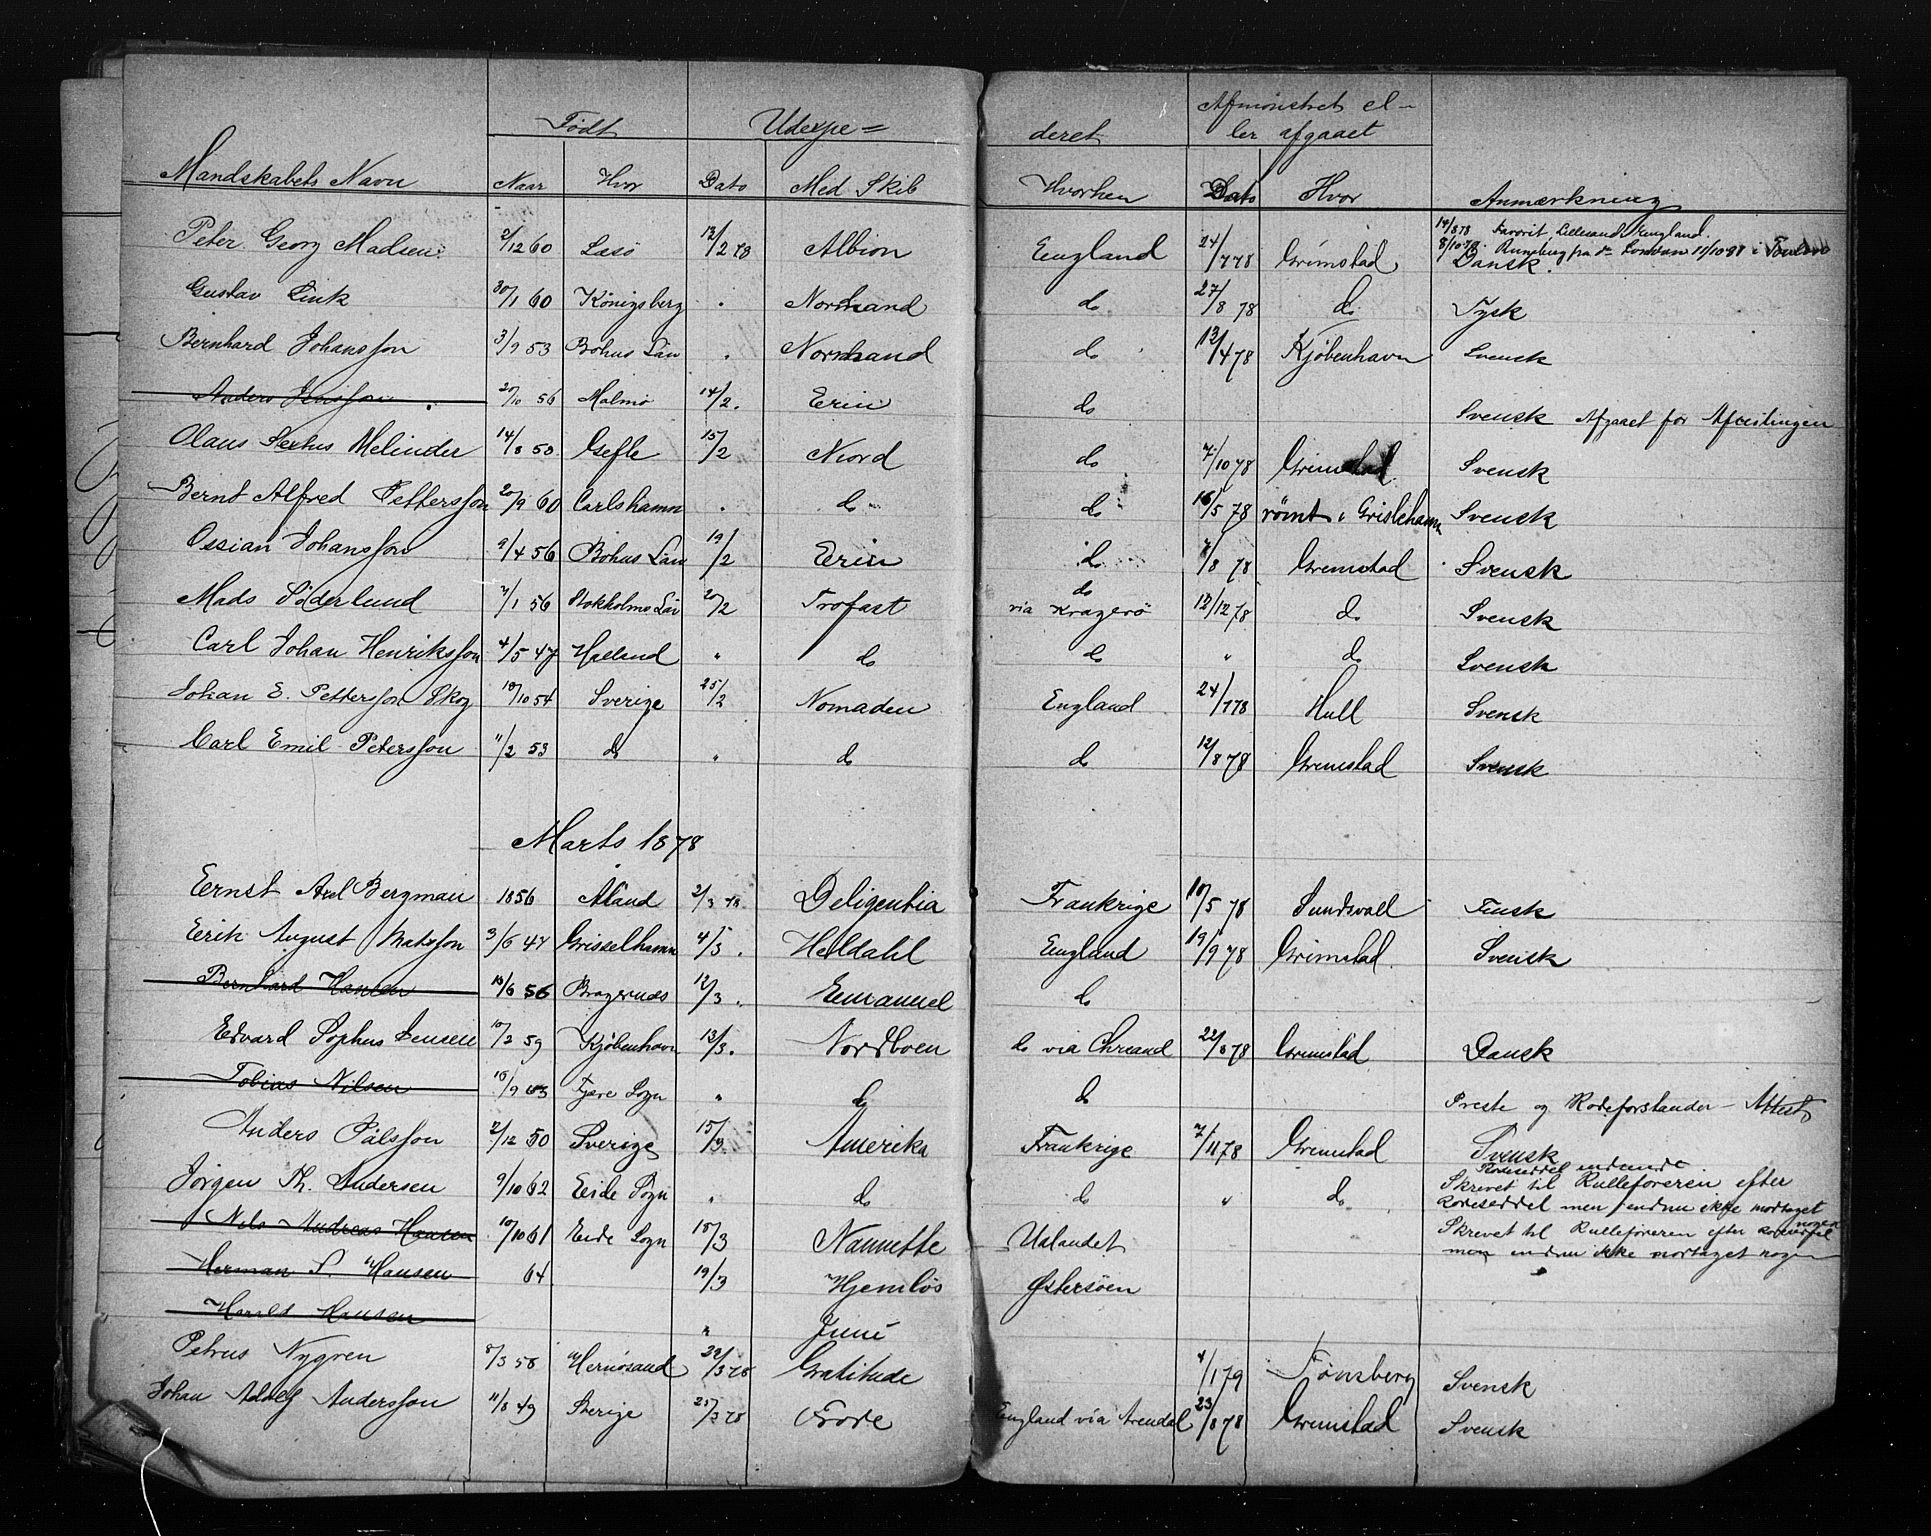 Mandskabets Navn | Født Naar | Hvor | Udexpe= Dato | Med Skib | deret Hvorhen | Afmønstret el- ler afgaaet Dato | Hvor | Anmærkning
Peter Georg Madsen | 2/12 60 | Læsö | 12/2 78 | Albion | England | 24/7 78 | Grimstad | 14/8 78 Favorit Lillesand England. 8/10 78 Dansk.
Gustav Link | 30/1 60 | Königsberg | . | Normand | do | 27/8 78 | do | Tysk
Bernhard Johansson | 3/9 53 | Bohus Län | . | Normand | do | 12/4 78 | Kjøbenhavn | Svensk
Anders Jönsson | 20/10 56 | Malmø | 14/2. | Erin | do | Svensk Afgaaet før Afreisningen
Olaus Melinder | 14/8 53 | Gefle | 15/2 | Niord | do | 7/10 78 | Grimstad | Svensk
Bernt Alfred Pettersson | 20/9 60 | Carlshamn | . | do | do | 16/5 78 | rømt i Grislehamn | Svensk
Ossian Johansson | 9/4 56 | Bohus Län | 19/2 | Erin | do | 7/8 78 | Grimstad | Svensk
Mads Söderlund | 7/1 56 | Stokholms Län | 20/2 | Trofast | do via Kragerö | 12/12 78 | do | Svensk
Carl Johan Henriksson | 4/5 47 | Halland | " | do | do | " | do | Svensk
Johan E. Pettersson Skog | 10/10 54 | Sverige | 25/2 | Nomaden | England | 24/7 78 | Hull | Svensk
Carl Emil Petersson | 11/2 53 | do | " | do | do | 12/8 78 | Grimstad | Svensk
Marts 1878
Ernst Axel Bergman | 1856 | Åland | 2/3 78 | Deligentia | Frankrige | 10/5 78 | Sundsvall | Finsk
Erik August Matsson | 3/6 47 | Grisselhamn | 4/3. | Heldahl | England | 19/9 78 | Grimstad | Svensk
Bernhard Hansen | 10/6 56 | Bragernæs | 12/3 . | Emanuel | do
Edvard Sophus Jensen | 10/2 59 | Kjøbenhavn | 13/3. | Nordboen | do via Chrsand | 22/8 78 | Grimstad | Dansk
Tobias Nilsen | 10/9 63 | Fjære Sogn | " | do | do | Preste og Rodeforstander-Attest
Anders Pålsson | 2/12 50 | Sverige | 15/3 | Amerika | Frankrige | 7/11 78 | Grimstad | Svensk
Jörgen Th. Andersen | 9/10 62 | Eide Sogn | " | do | do | " | do | Rodeseddel indsendt Skrevet til Rulleföreren efter Rodeseddel men endnu ikke modtaget nogen
Nils Andreas Hansen | 10/10 61 | Eide Sogn | 15/3 | Nannette | Udlandet | Skrevet til Rulleföreren efter Rodeseddel men endnu ikke modtaget nogen
Herman S. Hansen | 64 | 19/3 | Hjemløs | Østersöen
Harald Hansen | " | Juni
Petrus Nygren | 8/3 58 | Hernösand | 22/3 78 | Gratitude | 4/1 79 | Tønsberg | Svensk
Johan Adolf Andersson | 11/8 49 | Sverige | 25/3 78 | Frode | England via Arendal | 23/8 78 | Grimstad | Svensk